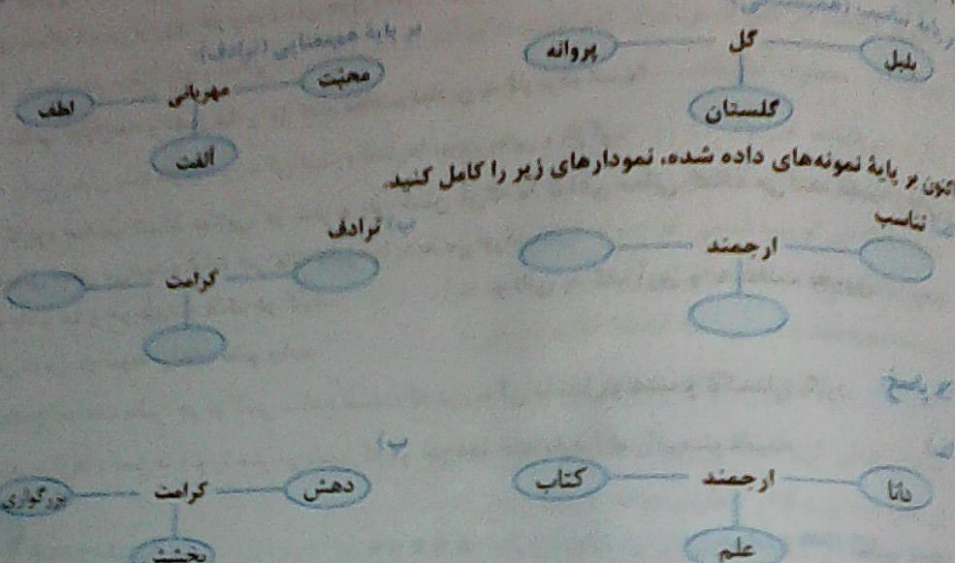 بر پایهٔ هم‌معنایی (ترادف)
بلبل گل پروانه
گلستان
محبّت مهربانی لطف
اُلفت
اکنون بر پایهٔ نمونه‌های داده شده، نمودارهای زیر را کامل کنید.
تناسب
ارجمند
تَرادف
کرامت
دانا ارجمند کتاب
علم
ب)
دهش کرامت بزرگواری
بخشش